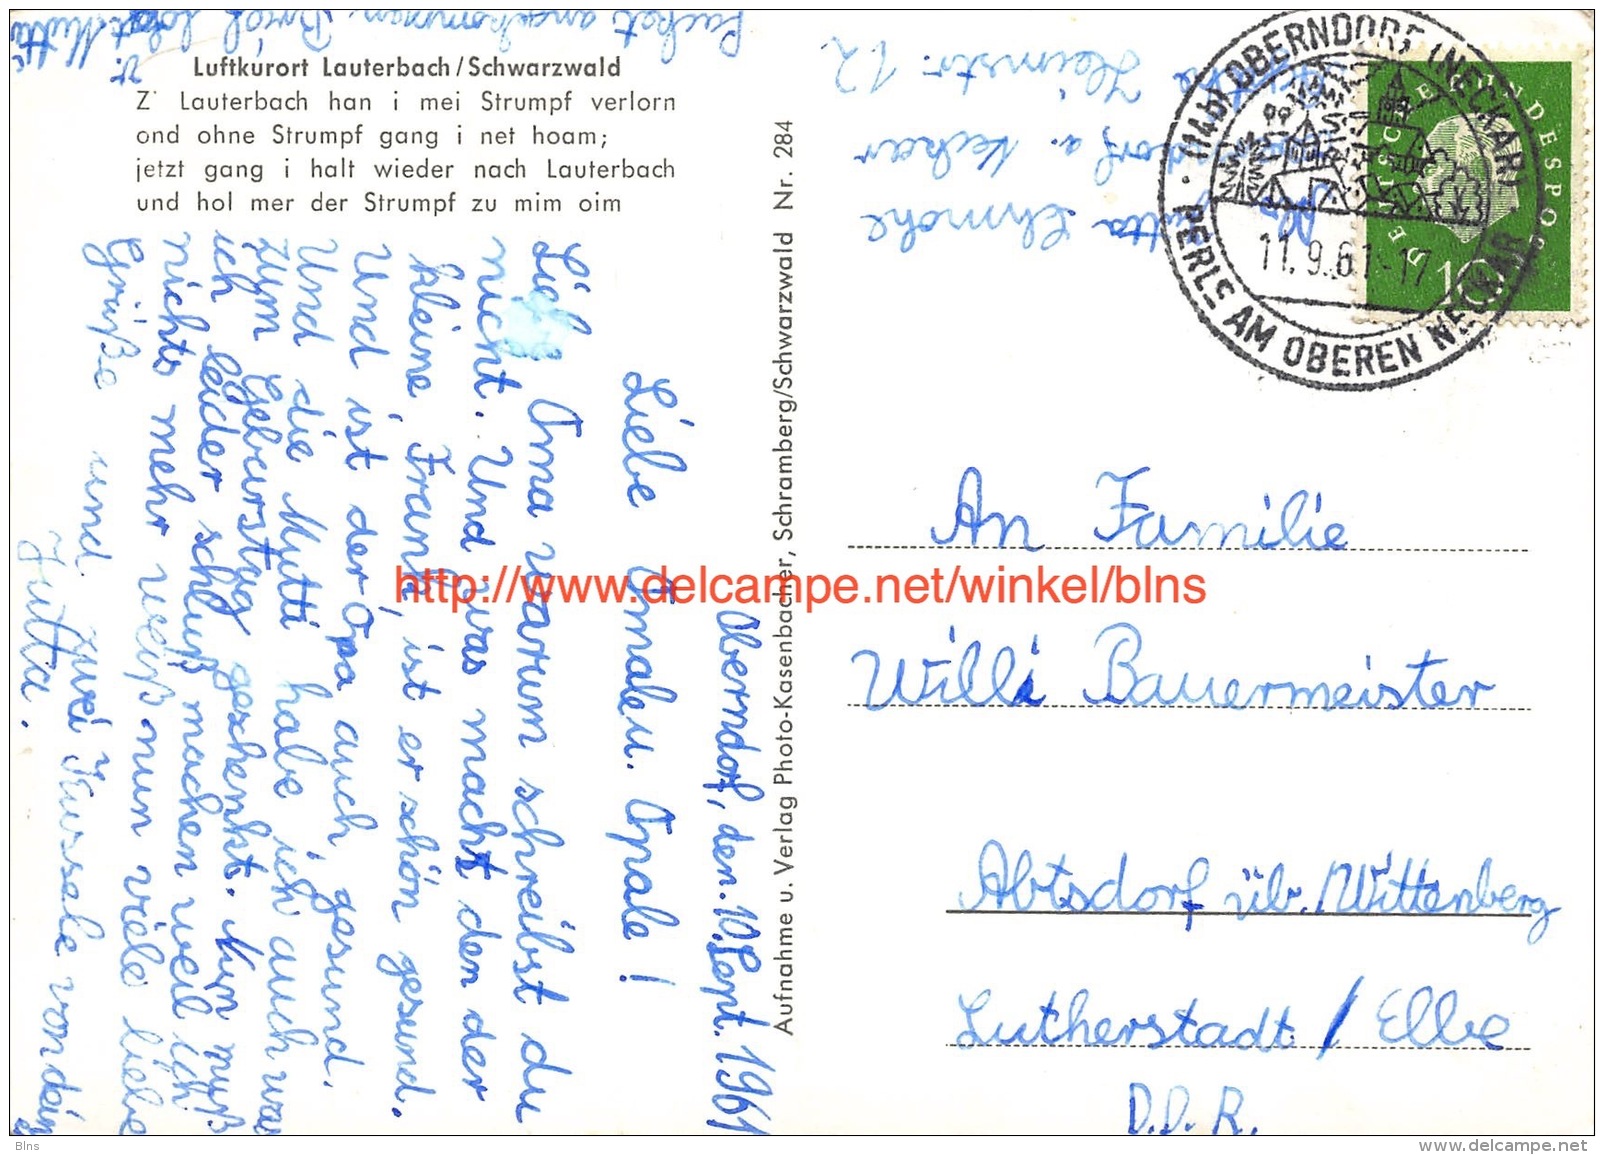 Luftkurort Lauterbach/Schwarzwald
Z' Lauterbach han i mei Strumpf verlorn
ond ohne Strumpf gang i net hoam;
jetzt gang i halt wieder nach Lauterbach
und hol mer der Strumpf zu mim oim
Aufnahme u. Verlag Photo-Kasenbacher, Schramberg/Schwarzwald Nr. 284
Oberndorf, den. 10. Sept. 1961
Liebe Omaleu. Opale!
Lieb Oma warum schreibst du
nicht. Und was macht den der
kleine Frank, ist er schön gesund.
Und ist der Opa auch gesund.
Und die Mutti habe ich auch was
zum Geburstag geschenkt. Nun muß
ich leider schluß machen weil ich
nichts mehr weiß nun viele liebe
Grüße und zwei Küssele von dein
Jutta.
Packet angekommen. Brief folgt. Mutti
Jutta Ehmohe
a. Neckar
Heimstr. 12
7241 OBERNDORF (NECKAR)
PERLE AM OBEREN NECKAR
11.9.61-17
DEUTSCHE BUNDESPOST
10
An Familie
Willi Bauermeister
Abtsdorf üb./Wittenberg
Lutherstadt / Elbe
D.D.R.
http://www.delcampe.net/winkel/blns
Blns
www.delcampe.net